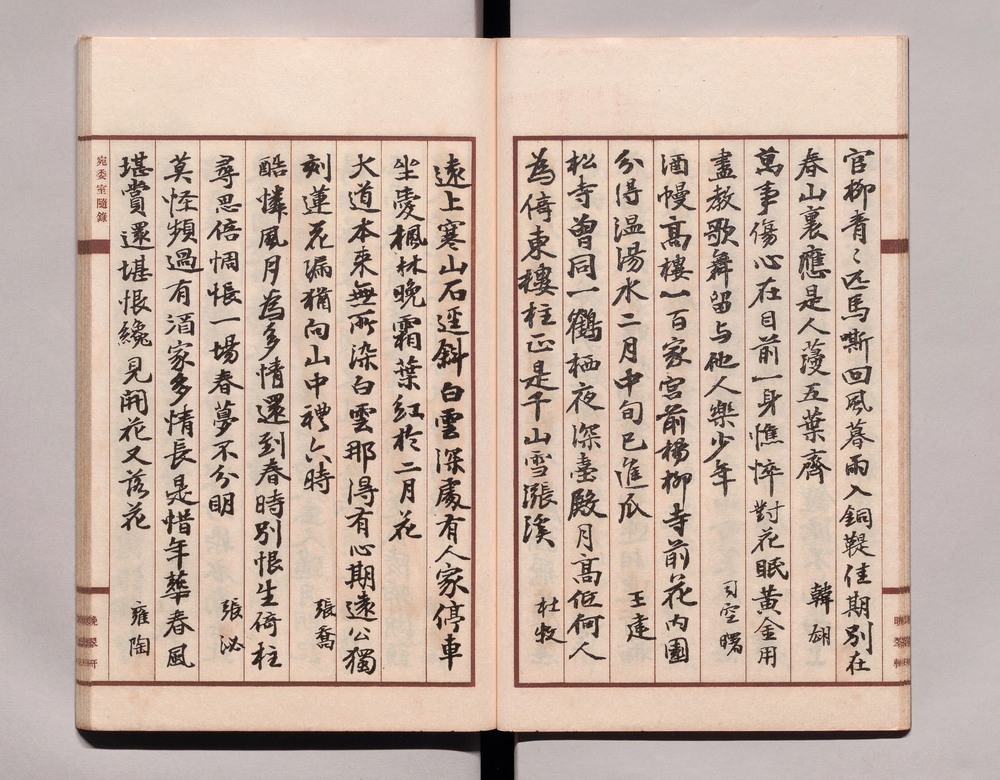 官柳青〻匹馬嘶回風暮雨入銅鞮佳期別在
春山裏應是人薓五葉齊　韓翃
萬事傷心在目前一身憔悴對花眠黃金用
盡教歌舞留与他人樂少年　司空曙
酒幔高樓一百家宮前楊柳寺前花內園
分得溫湯水二月中旬已進瓜　王建
松寺曾同一鶴栖夜深臺殿月高低何人
為倚東樓柱正是千山雪漲溪　杜牧
遠上寒山石逕斜白雲深處有人家停車
坐愛楓林晚霜葉紅於二月花
大道本來無所染白雲那得有心期遠公獨
刻蓮花漏猶向山中禮六時　張喬
酷憐風月為多情還到春時別恨生倚柱
尋思倍惆悵一場春夢不分明　張泌
莫怪頻過有酒家多情長是惜年華春風
堪賞還堪恨纔見開花又落花　雍陶
宛委室隨錄